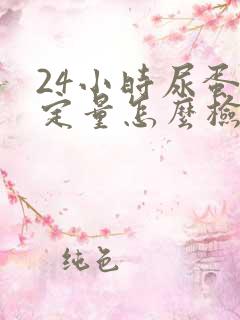 24小時尿蛋
定量怎麼檢
純色